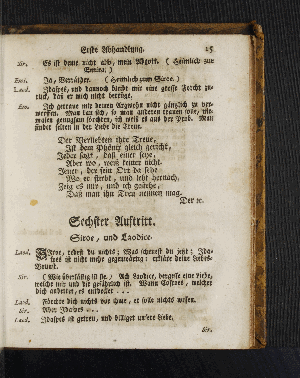 Erste Abhandlung. 15
Sir. Es ist deme nicht also, mein Abgott. (Heimlich zur
Emira.)
Emi. Ja, Verräther. (Heimlich zum Siroe.)
Laod. Idaspes, und dannoch bleibt mir eine grosse Forcht zu-
ruck, daß er mich nicht betrüge.
Em. Ich getraue mir deinen Argwohn nicht gänzlich zu ver-
werffen. Man kan sich, so man anderen trauen will,
niemalen genugsam förchten, ich weiß es aus der Prob. Man
findet selten in der Liebe die Treue.
Der Verliebten ihre Treue,
Ist dem Phönix gleich gericht,
Jeder sagt, daß einer seye,
Aber wo, weiß keiner nicht.
Jener, der sein Ort da sehe
Wo er stirbt, und lebt hernach,
Zeig es mir, und ich gestehe,
Daß man ihn Treu nennen mag.
Der ꝛc.
Sechster Auftritt.
Siroe, und Laodice.
Laod. Siroe, redest du nichts; Was scheuest du jetzt; Ida-
spes ist nicht mehr gegenwärtig: erkläre deine Liebes-
Brunst.
Sir. (Wie überlästig ist sie.) Ach Laodice, vergesse eine Liebe,
welche mir und dir gefährlich ist. Wann Cosroes, welcher
dich anbettet, es entdecket . . .
Laod. Förchte dich nichts vor ihme, er solle nichts wissen.
Sir. Aber Idaspes . . .
Laod. Idaspes ist getreu, und billiget unsere Liebe.
Sir.